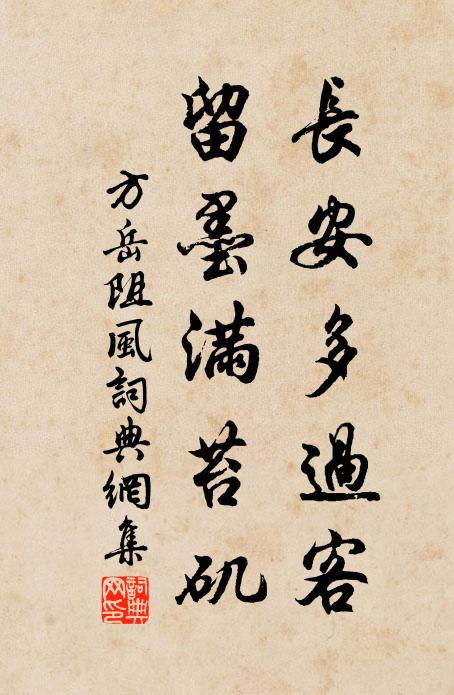 長安多過客
留墨滿苔矶
方岳阻風詞典網集
詞典網印